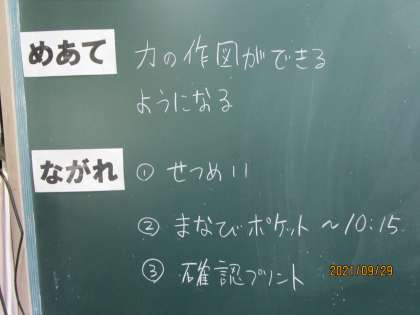 めあて 力の作図ができる
ようになる
ながれ ① せつめい
② まなびポケット ～10:15
③ 確認プリント
2021/09/29